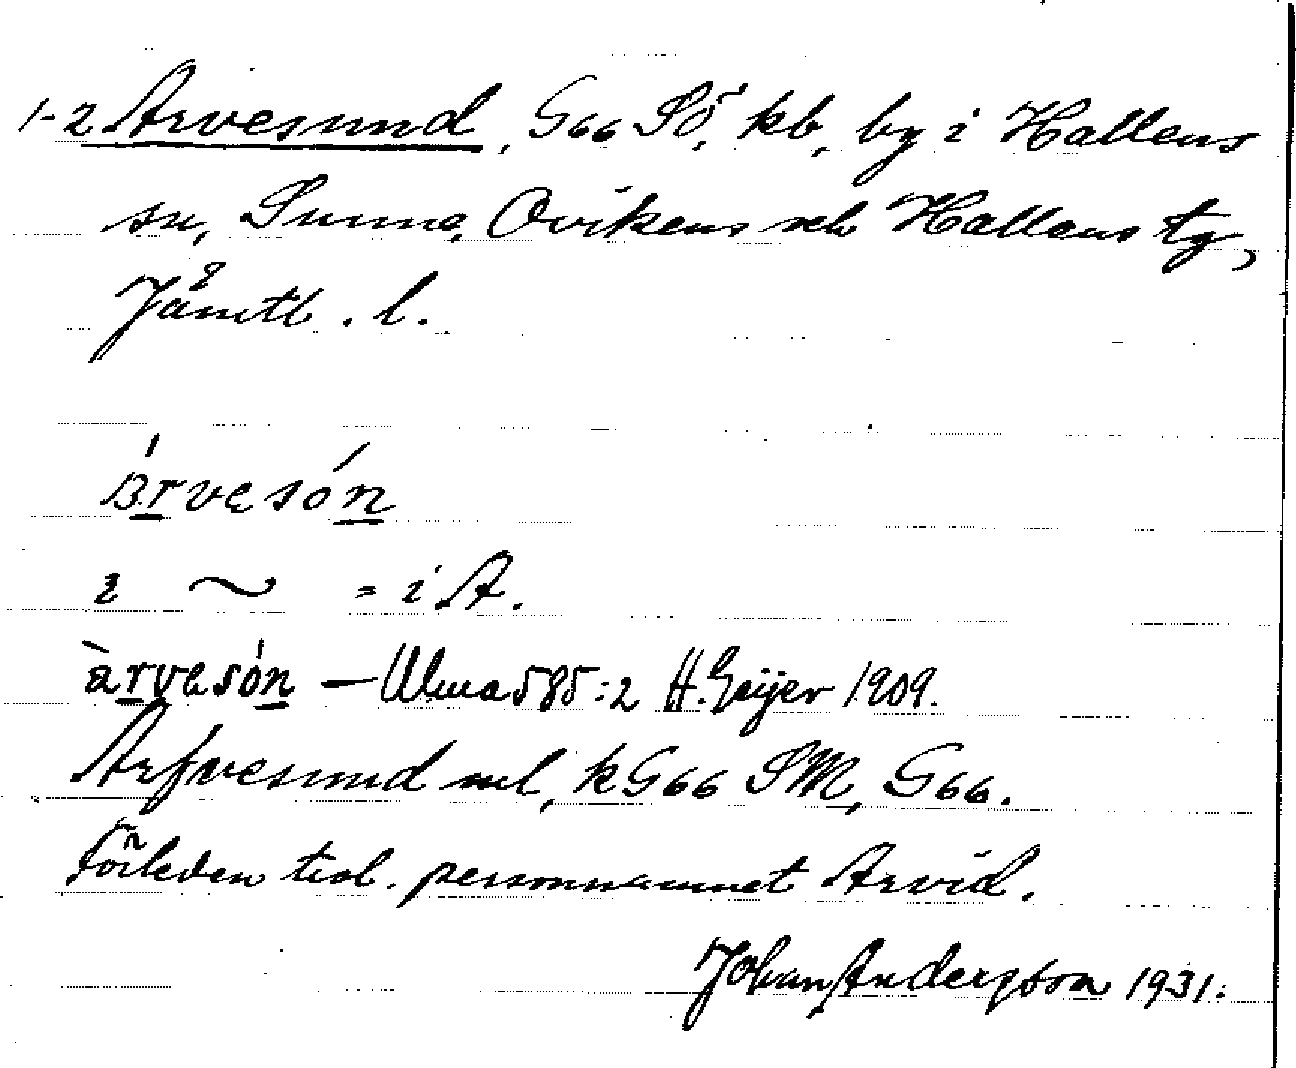 1-2 Arvesund, G66 SÖ, kb, by i Hallens
sn, Sunne, Ovikens och Hallens tg,
Jämtl. l.
árvesón
i ~ = i A.
àrvesón – Ulma 585:2 H. Geijer 1909.
Arfvesund ml, k G66 SM, G66.
Förleden trol. personnamnet Arvid.
Johan Andersson 1931.